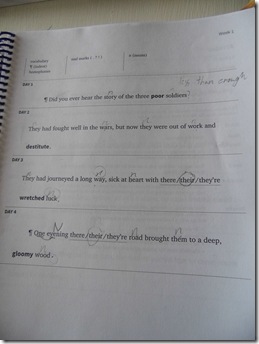 Week 1
vocabulary
end marks
¶ (indent)
homophones
DAY 1
¶ Did you ever hear the story of the three poor soldiers
DAY 2
They had fought well in the wars, but now they were out of work and
destitute.
DAY 3
They had journeyed a long way, sick at heart with there/their/they're
wretched luck.
DAY 4
¶ One evening there/their/they're road brought them to a deep,
gloomy wood.